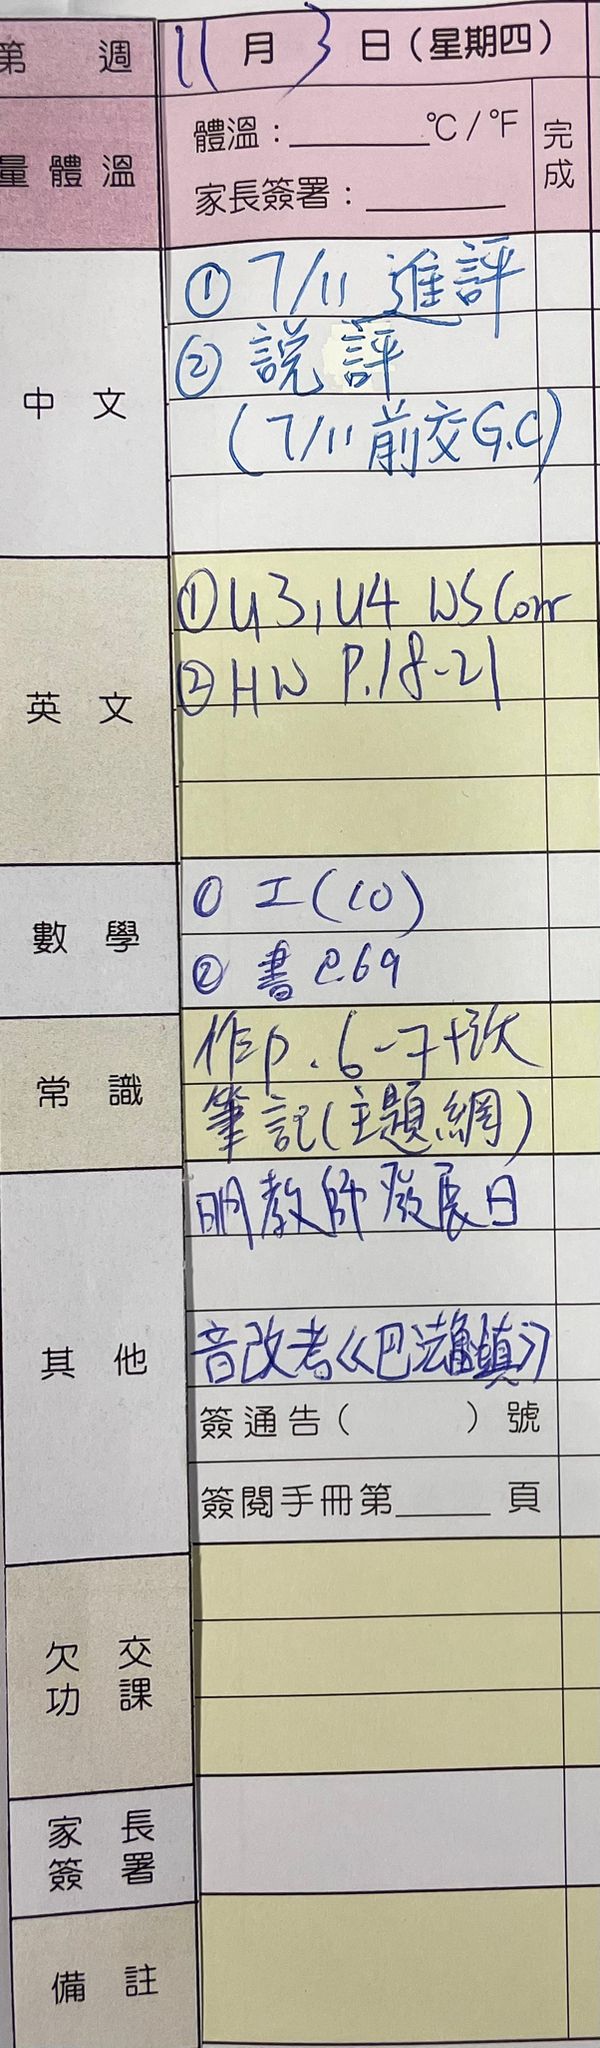 第 週 11月3日(星期四)
量體溫
體溫:______°C/°F
家長簽署:______
完成
中文
① 7/11 進評
② 説評
(7/11前交G.C)
英文
① U3, U4 WS Corr
② HW P.18-21
數學
① 工(10)
② 書P.69
常識
作p.6-7+改
筆記(主題網)
其他
明教師發展日
音改考《巴法鎮》
簽通告( )號
簽閱手冊第______頁
欠交
功課
家長
簽署
備註